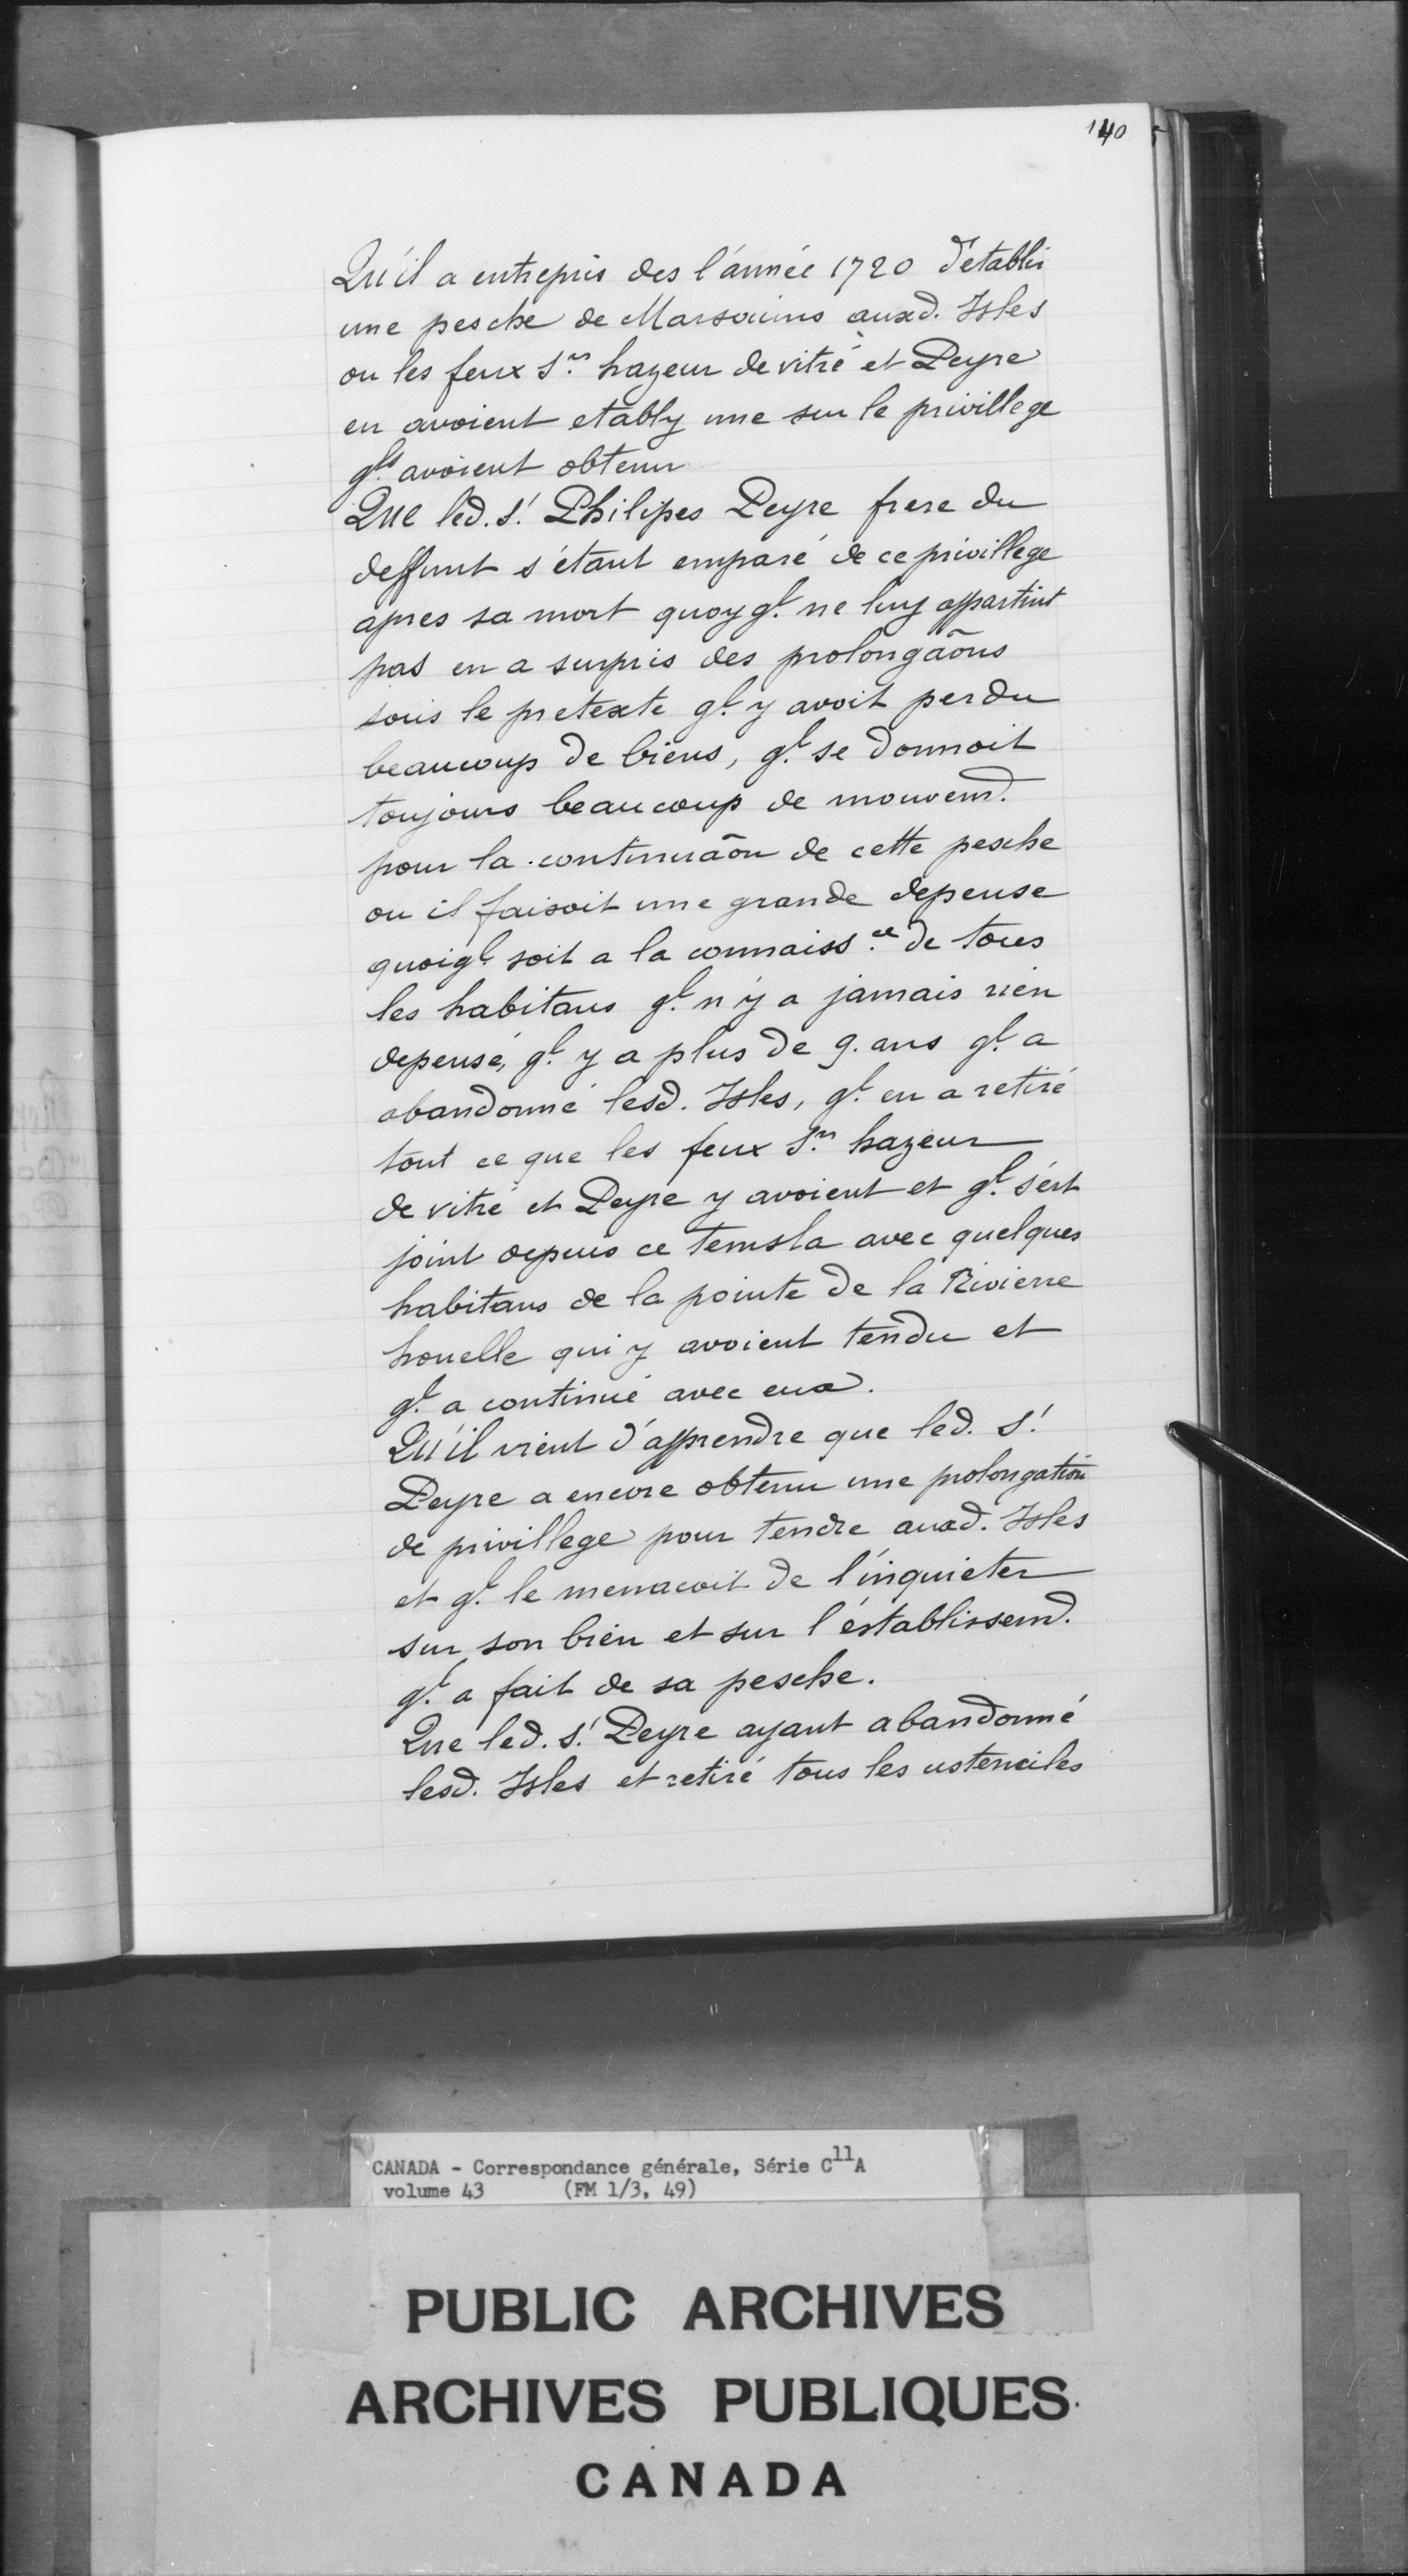 140
Qu'il a entrepris des l'année 1720 d'etablir
une pesche de Marsouins auxd. Isles
ou les feux Srs hazeur de vitré et Peyre
en avoient etably une sur le privillege
qls avoient obtenu
Que led. Sr Philipes Peyre frere du
deffunt s'étant emparé de ce privillege
apres sa mort quoy ql ne luy appartint
pas en a surpris des prolongãons
sous le pretexte ql y avoit perdu
beaucoup de biens, ql se donnoit
toujours beaucoup de mouvemt.
pour la continuãon de cette pesche
ou il faisoit une grande depense
quoiql soit a la connaissce de tous
les habitans ql n'y a jamais rien
depensé, ql y a plus de 9. ans ql a
abandonné lesd. Isles, ql en a retiré
tout ce que les feux Srs hazeur
de vitré et Peyre y avoient et ql s'est
joint depuis ce temsla avec quelques
habitans de la pointe de la Rivierre
houelle qui y avoient tendu et
ql a continué avec eux.
Qu'il vient d'apprendre que led. Sr
Peyre a encore obtenu une prolongation
de privillege pour tendre auxd. Isles
et ql le menacoit de l'inquieter
sur son bien et sur l'establissemt.
ql a fait de sa pesche.
Que led. Sr Peyre ayant abandonné
lesd. Isles et retiré tous les ustenciles
CANADA - Correspondance générale, Série C11A
volume 43 (FM 1/3, 49)
PUBLIC ARCHIVES
ARCHIVES PUBLIQUES
CANADA